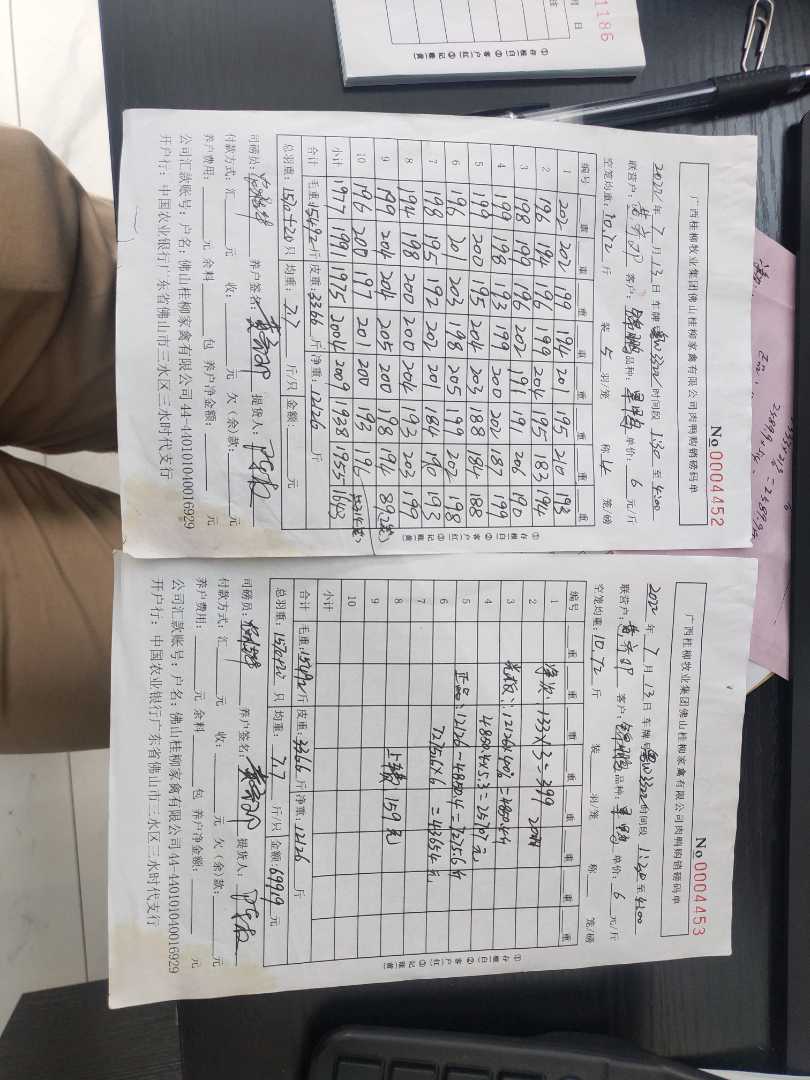 1186
月 日
①存根(白) ②客户(红) ③记账(黄)
广西桂柳牧业集团佛山桂柳家禽有限公司肉鸭购销磅码单
No 0004452
2022年 7月 13日 车牌 时间段 1:30 至 4:00
联营户: 客户: 品种: 单价: 6 元/斤
空笼均重: 10.72 斤 装 5 羽/笼 称 4 笼/磅
编号 重 重 重 重 重 重 重 重
1 202 202 199 194 201 195 210 193
2 196 194 196 199 204 195 183 194
3 198 199 196 202 191 191 206 190
4 199 198 193 199 200 202 187 199
5 199 200 195 204 203 188 184 188
6 196 201 203 198 205 199 202 198
7 198 195 192 202 201 184 193
8 194 198 200 200 204 193 203 199
9 199 204 204 205 200 198 194
10 196 200 197 201 200 193 196
小计 1977 1991 1975 2004 2009 1938 1955 1643
合计 毛重: 15492 斤 皮重: 3366 斤 净重: 12126 斤
总羽重: 1570+20 只 均重: 7.7 斤/只 金额: 元
司磅员: 养户签名: 提货人:
付款方式: 汇 元 收: 元 欠(余)款: 元
养户费用: 元 余料 包 养户净金额: 元
公司汇款账号: 户名: 佛山桂柳家禽有限公司 44-440101040016929
开户行: 中国农业银行广东省佛山市三水区三水时代支行
①存根(白) ②客户(红) ③记账(黄)
广西桂柳牧业集团佛山桂柳家禽有限公司肉鸭购销磅码单
No 0004453
2022年 7月 13日 车牌 时间段 1:30 至 4:00
联营户: 客户: 品种: 单价: 6 元/斤
空笼均重: 10.72 斤 装 羽/笼 称 笼/磅
编号 重 重 重 重 重 重 重 重
1
2 133×3=399
3 12126×40%=4850.4
4 4850.4×5.3=25707元
5 正品: 12126-4850.4=7275.6斤
6 7275.6×6=43654元
7
8 159元
9
10
小计
合计 毛重: 15492 斤 皮重: 3366 斤 净重: 12126 斤
总羽重: 1570+20 只 均重: 7.7 斤/只 金额: 69919 元
司磅员: 养户签名: 提货人:
付款方式: 汇 元 收: 元 欠(余)款: 元
养户费用: 元 余料 包 养户净金额: 元
公司汇款账号: 户名: 佛山桂柳家禽有限公司 44-440101040016929
开户行: 中国农业银行广东省佛山市三水区三水时代支行
①存根(白) ②客户(红) ③记账(黄)